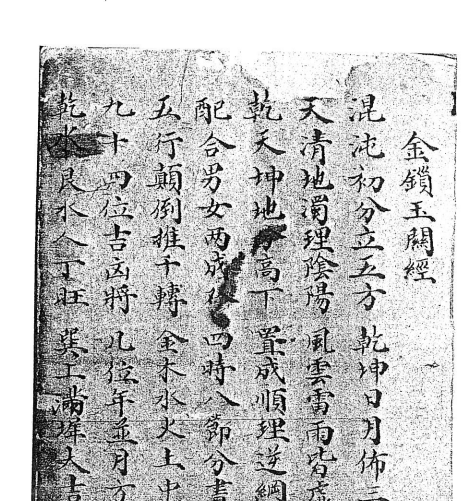 金鎖玉關經
混沌初分立五方 乾坤日月佈三
天清地濁理陰陽 風雲雷雨皆
乾天坤地 高下 置成順理逆綱
配合男女两成 四時八節分書
五行顛倒推千轉 金木水火土中
九十四位吉凶將 几位年並月方
乾水艮水人丁旺 巽工滿 大吉